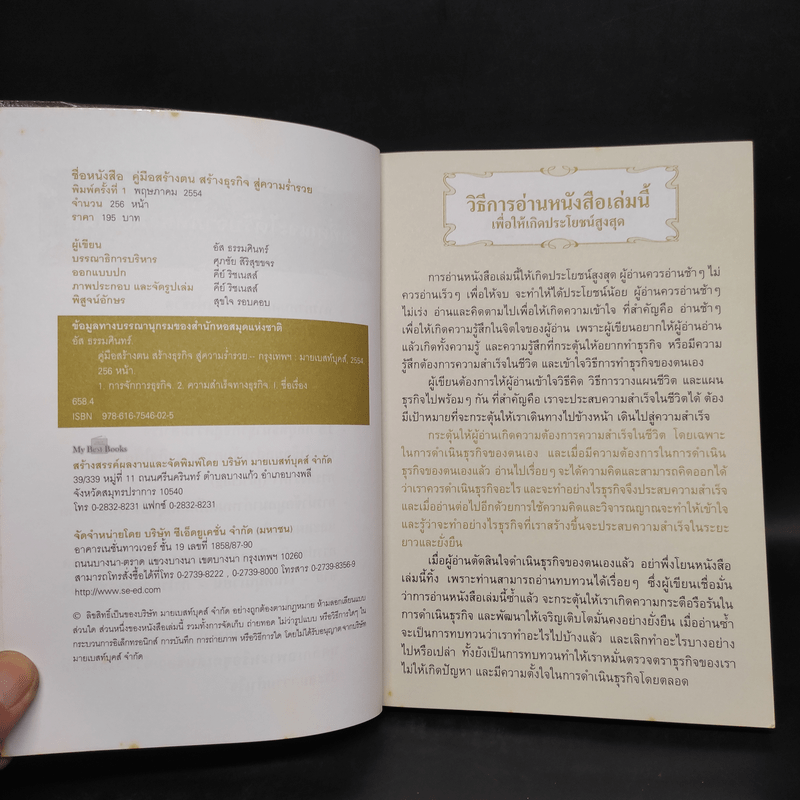 ชื่อหนังสือ คู่มือสร้างตน สร้างธุรกิจ สู่ความร่ำรวย
พิมพ์ครั้งที่ 1 พฤษภาคม 2554
จำนวน 256 หน้า
ราคา 195 บาท
ผู้เขียน อัส ธรรมศินทร์
บรรณาธิการบริหาร ศุภชัย สิริสุขขจร
ออกแบบปก คีย์ วิชเนสส์
ภาพประกอบ และจัดรูปเล่ม คีย์ วิชเนสส์
พิสูจน์อักษร สุขใจ รอบคอบ
ข้อมูลทางบรรณานุกรมของสำนักหอสมุดแห่งชาติ
อัส ธรรมศินทร์.
คู่มือสร้างตน สร้างธุรกิจ สู่ความร่ำรวย.-- กรุงเทพฯ : มายเบสท์บุคส์, 2554
256 หน้า.
1. การจัดการธุรกิจ. 2. ความสำเร็จทางธุรกิจ. I. ชื่อเรื่อง
658.4
ISBN 978-616-7546-02-5
My Best Books
สร้างสรรค์ผลงานและจัดพิมพ์โดย บริษัท มายเบสท์บุคส์ จำกัด
39/339 หมู่ที่ 11 ถนนศรีนครินทร์ ตำบลบางแก้ว อำเภอบางพลี
จังหวัดสมุทรปราการ 10540
โทร 0-2832-8231 แฟกซ์ 0-2832-8231
จัดจำหน่ายโดย บริษัท ซีเอ็ดยูเคชั่น จำกัด (มหาชน)
อาคารเนชั่นทาวเวอร์ ชั้น 19 เลขที่ 1858/87-90
ถนนบางนา-ตราด แขวงบางนา เขตบางนา กรุงเทพฯ 10260
สามารถโทรสั่งซื้อได้ที่โทร 0-2739-8222 , 0-2739-8000 โทรสาร 0-2739-8356-9
http://www.se-ed.com
© ลิขสิทธิ์เป็นของบริษัท มายเบสท์บุคส์ จำกัด อย่างถูกต้องตามกฎหมาย ห้ามลอกเลียนแบบ
ส่วนใด ส่วนหนึ่งของหนังสือเล่มนี้ รวมทั้งการจัดเก็บ ถ่ายทอด ไม่ว่ารูปแบบ หรือวิธีการใดๆ ใน
กระบวนการอิเล็กทรอนิกส์ การบันทึก การถ่ายภาพ หรือวิธีการใด โดยไม่ได้รับอนุญาตจากบริษัท
มายเบสท์บุคส์ จำกัด
วิธีการอ่านหนังสือเล่มนี้
เพื่อให้เกิดประโยชน์สูงสุด
การอ่านหนังสือเล่มนี้ให้เกิดประโยชน์สูงสุด ผู้อ่านควรอ่านช้าๆ ไม่
ควรอ่านเร็วๆ เพื่อให้จบ จะทำให้ได้ประโยชน์น้อย ผู้อ่านควรอ่านช้าๆ
ไม่เร่ง อ่านและคิดตามไปเพื่อให้เกิดความเข้าใจ ที่สำคัญคือ อ่านช้าๆ
เพื่อให้เกิดความรู้สึกในจิตใจของผู้อ่าน เพราะผู้เขียนอยากให้ผู้อ่านอ่าน
แล้วเกิดทั้งความรู้ และความรู้สึกที่กระตุ้นให้อยากทำธุรกิจ หรือมีความ
รู้สึกต้องการความสำเร็จในชีวิต และเข้าใจวิธีการทำธุรกิจของตนเอง
ผู้เขียนต้องการให้ผู้อ่านเข้าใจวิธีคิด วิธีการวางแผนชีวิต และแผน
ธุรกิจไปพร้อมๆ กัน ที่สำคัญคือ เราจะประสบความสำเร็จในชีวิตได้ ต้อง
มีเป้าหมายที่จะกระตุ้นให้เราเดินทางไปข้างหน้า เดินไปสู่ความสำเร็จ
กระตุ้นให้ผู้อ่านเกิดความต้องการความสำเร็จในชีวิต โดยเฉพาะ
ในการดำเนินธุรกิจของตนเอง และเมื่อมีความต้องการในการดำเนิน
ธุรกิจของตนเองแล้ว อ่านไปเรื่อยๆ จะได้ความคิดและสามารถคิดออกได้
ว่าเราควรดำเนินธุรกิจอะไร และจะทำอย่างไรธุรกิจจึงประสบความสำเร็จ
และเมื่ออ่านต่อไปอีกด้วยการใช้ความคิดและวิจารณญาณจะทำให้เข้าใจ
และรู้ว่าจะทำอย่างไรธุรกิจที่เราสร้างขึ้นจะประสบความสำเร็จในระยะ
ยาวและยั่งยืน
เมื่อผู้อ่านตัดสินใจดำเนินธุรกิจของตนเองแล้ว อย่าพึ่งโยนหนังสือ
เล่มนี้ทิ้ง เพราะท่านสามารถอ่านทบทวนได้เรื่อยๆ ซึ่งผู้เขียนเชื่อมั่น
ว่าการอ่านหนังสือเล่มนี้ซ้ำแล้ว จะกระตุ้นให้เราเกิดความกระตือรือร้นใน
การดำเนินธุรกิจ และพัฒนาให้เจริญเติบโตมั่นคงอย่างยั่งยืน เมื่ออ่านซ้ำ
จะเป็นการทบทวนว่าเราทำอะไรไปบ้างแล้ว และเลิกทำอะไรบางอย่าง
ไปหรือเปล่า ทั้งยังเป็นการทบทวนทำให้เราหมั่นตรวจตราธุรกิจของเรา
ไม่ให้เกิดปัญหา และมีความตั้งใจในการดำเนินธุรกิจโดยตลอด